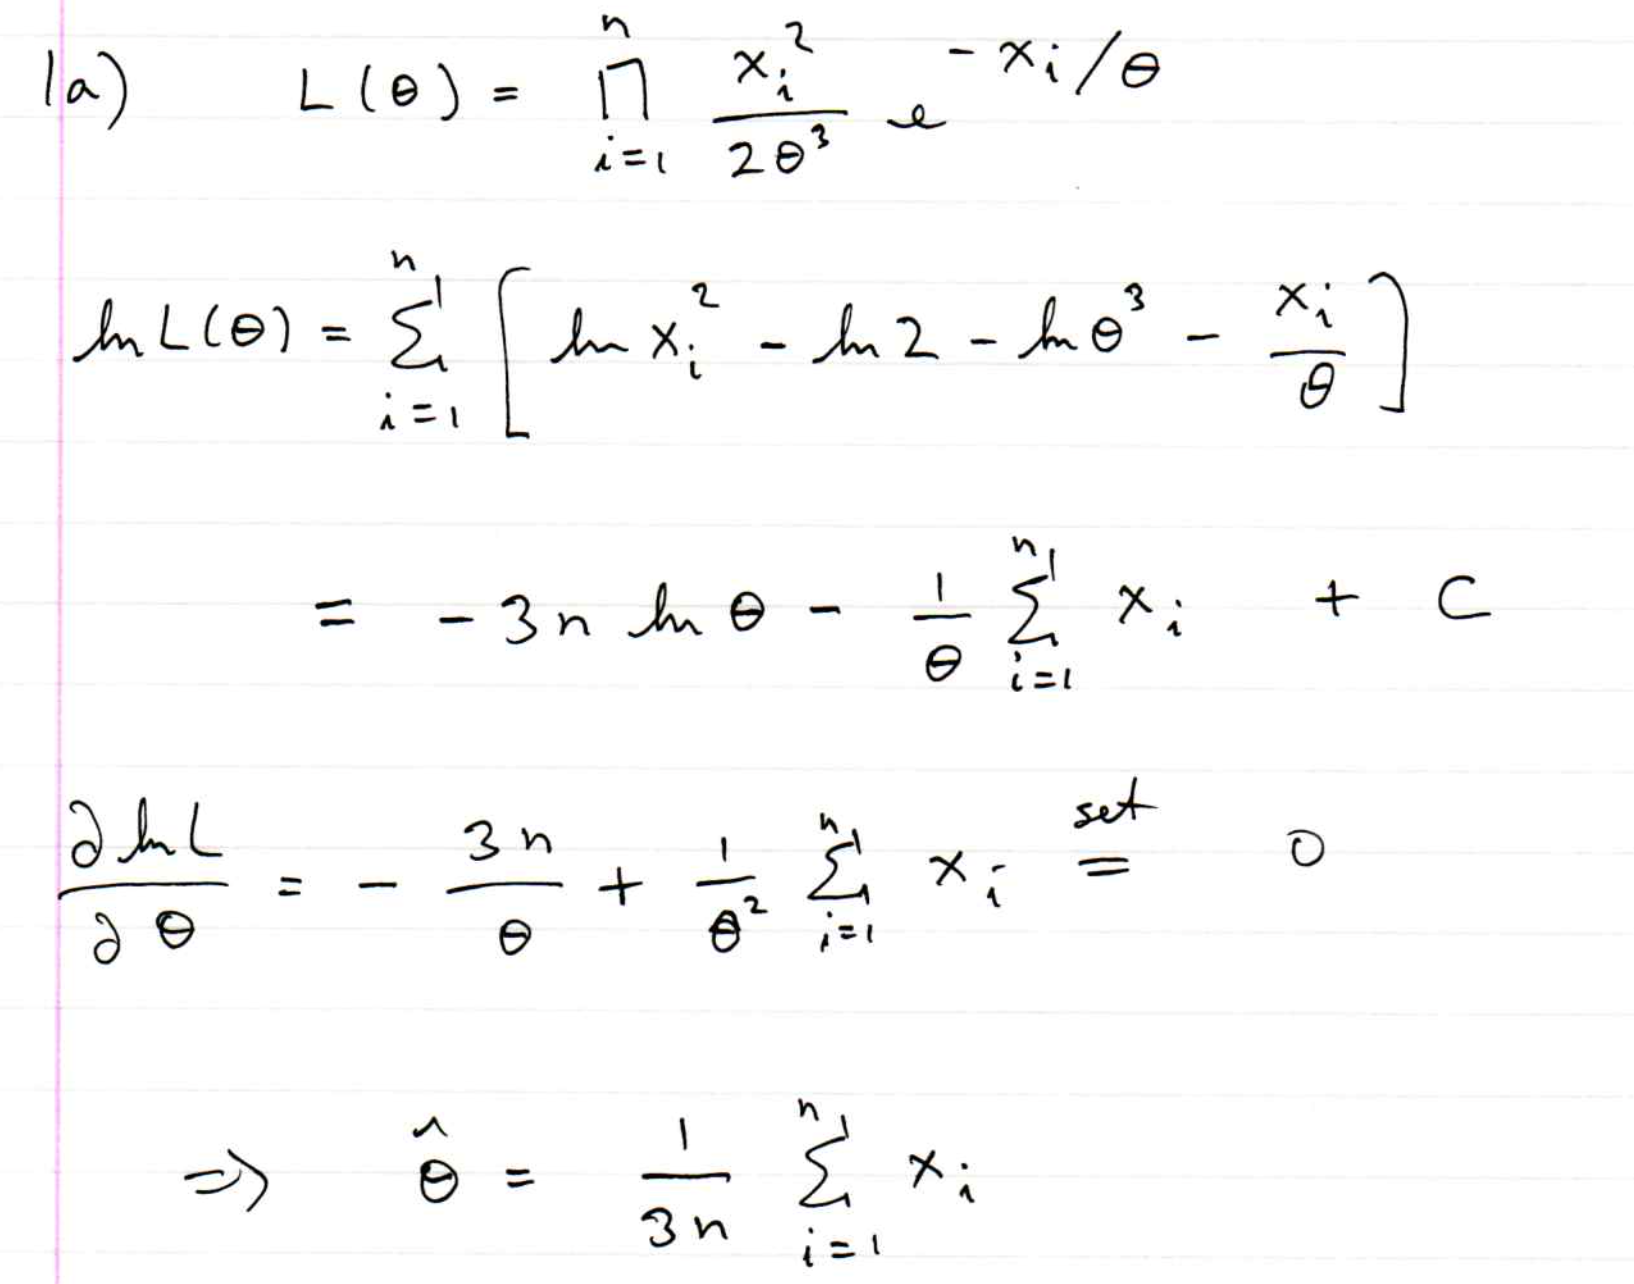 1a) L(θ) = ∏_{i=1}^{n} \frac{x_i^2}{2θ^3} e^{-x_i/θ}
ln L(θ) = ∑_{i=1}^{n} [ ln x_i^2 - ln 2 - ln θ^3 - \frac{x_i}{θ} ]
= -3n ln θ - \frac{1}{θ} ∑_{i=1}^{n} x_i + C
\frac{∂ ln L}{∂ θ} = - \frac{3n}{θ} + \frac{1}{θ^2} ∑_{i=1}^{n} x_i \overset{set}{=} 0
⇒ \hat{θ} = \frac{1}{3n} ∑_{i=1}^{n} x_i